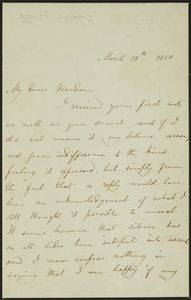 March 18th 1850
My dear Madam
I received your first note
as well as your second and if I
did not answer it my silence arose,
not from indifference to the kind
feeling it expressed, but simply from
the fact that a reply would have
been an acknowledgement of what I
still thought it possible to conceal.
It seems however that silence has
on all sides been interpreted into assent
and I now confess nothing in
saying that I am happy if my